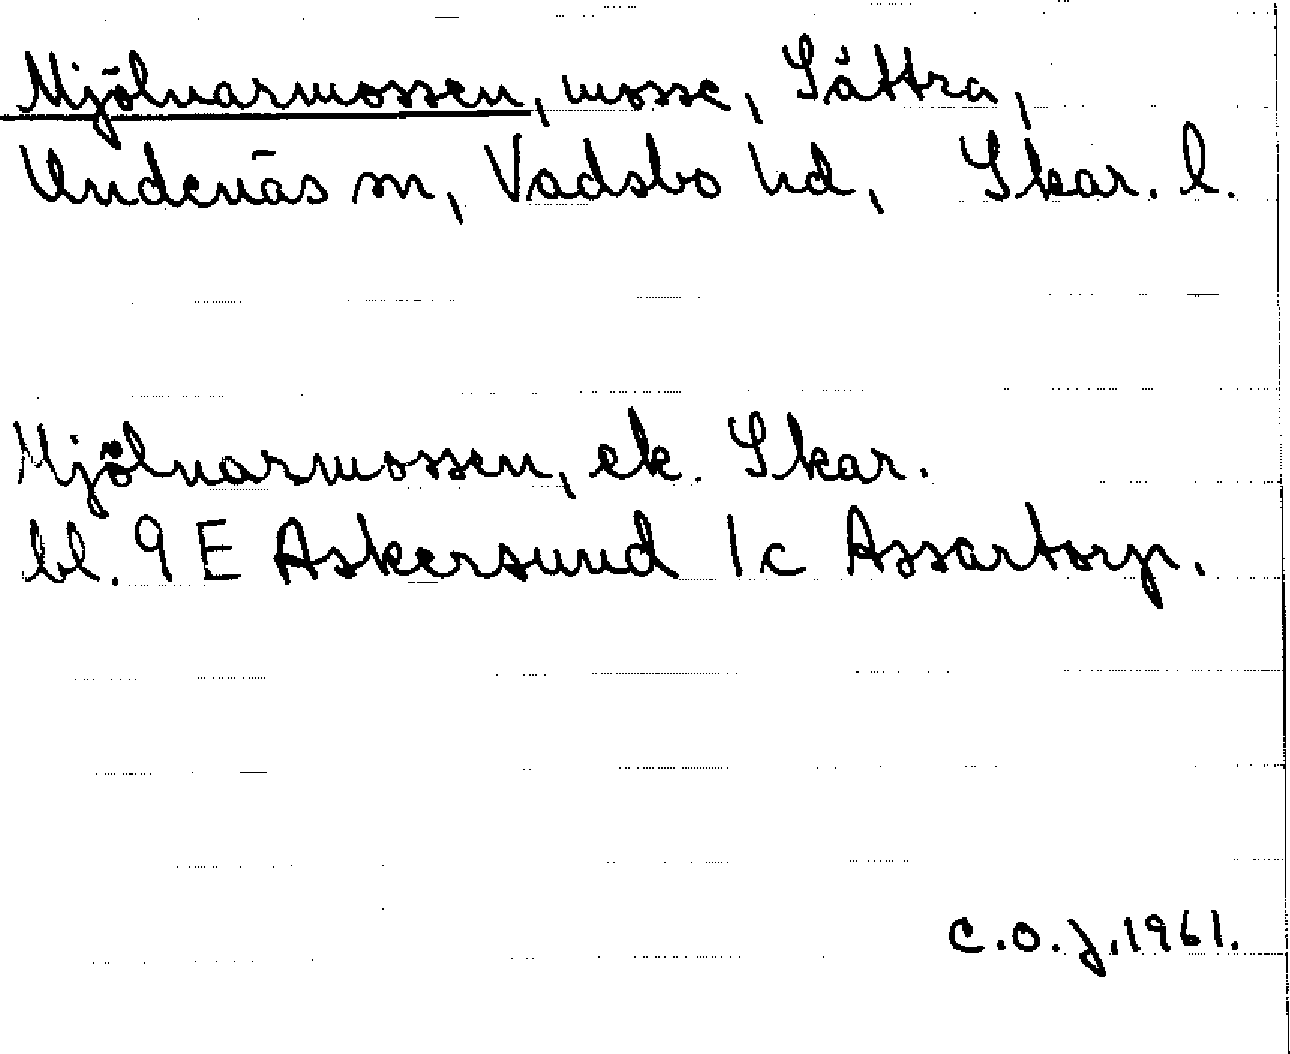 Mjölnarmossen, mosse, Sättra,
Undenäs sn, Vadsbo hd, Skar. l.
Mjölnarmossen, ek. Skar.
bl. 9 E Askersund 1c Assartorp.
C.O.J. 1961.